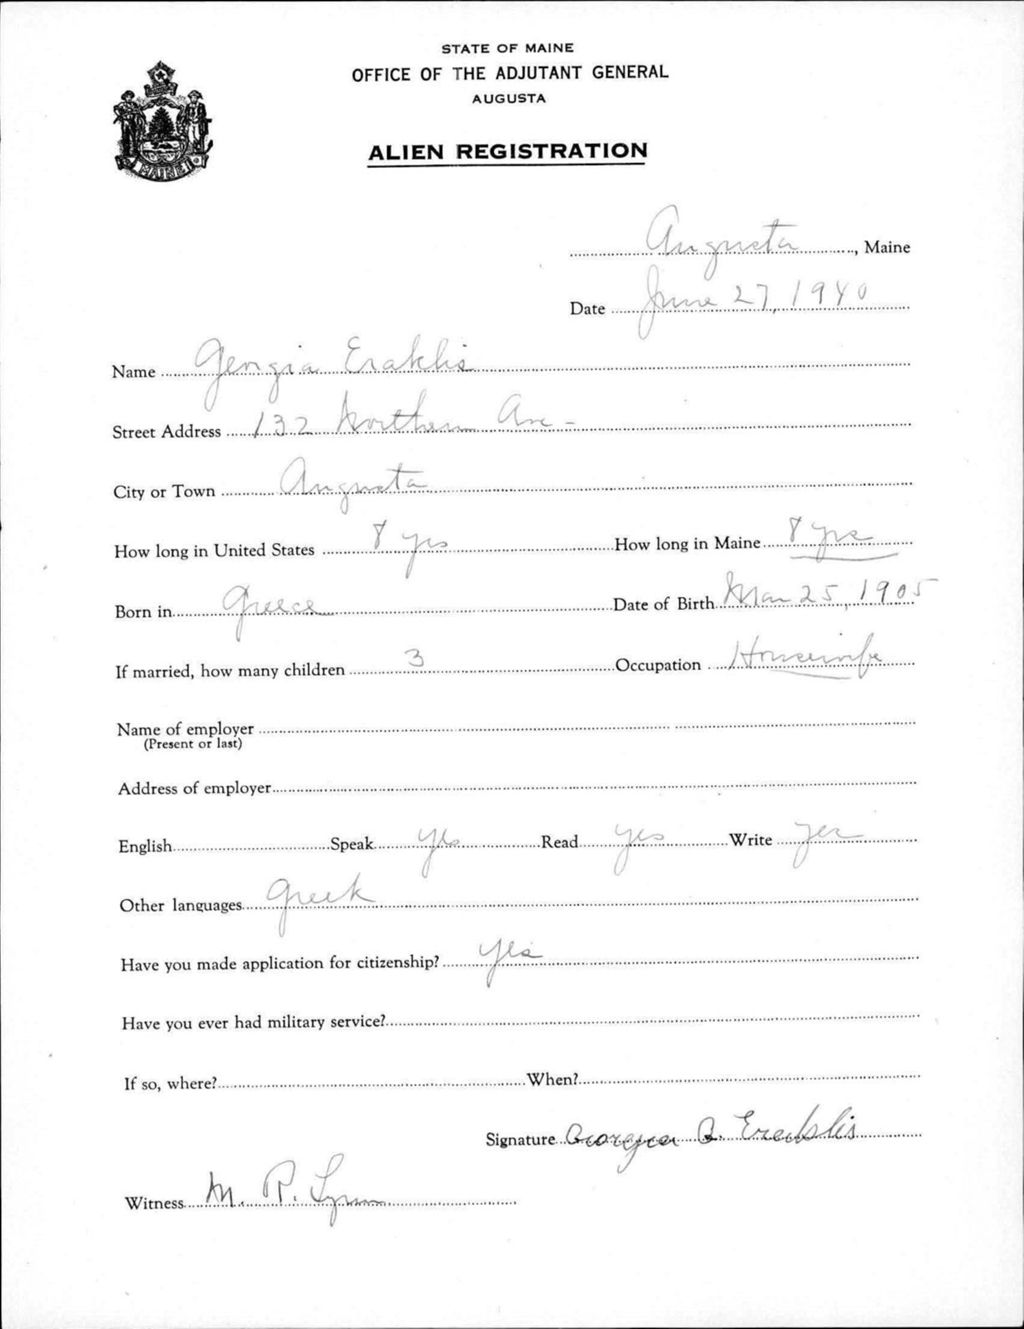 STATE OF MAINE
OFFICE OF THE ADJUTANT GENERAL
AUGUSTA
ALIEN REGISTRATION
MAINE
Augusta, Maine
Date June 27, 1940
Name Georgia Eraklis
Street Address 132 Northern Ave -
City or Town Augusta
How long in United States 8 yrs How long in Maine 8 yrs.
Born in Greece Date of Birth Mar 25, 1905
If married, how many children 3 Occupation Housewife
Name of employer
(Present or last)
Address of employer
English Speak yes Read yes Write yes
Other languages Greek
Have you made application for citizenship? yes
Have you ever had military service?
If so, where? When?
Signature Georgia B. Eraklis
Witness M. P. Lynn